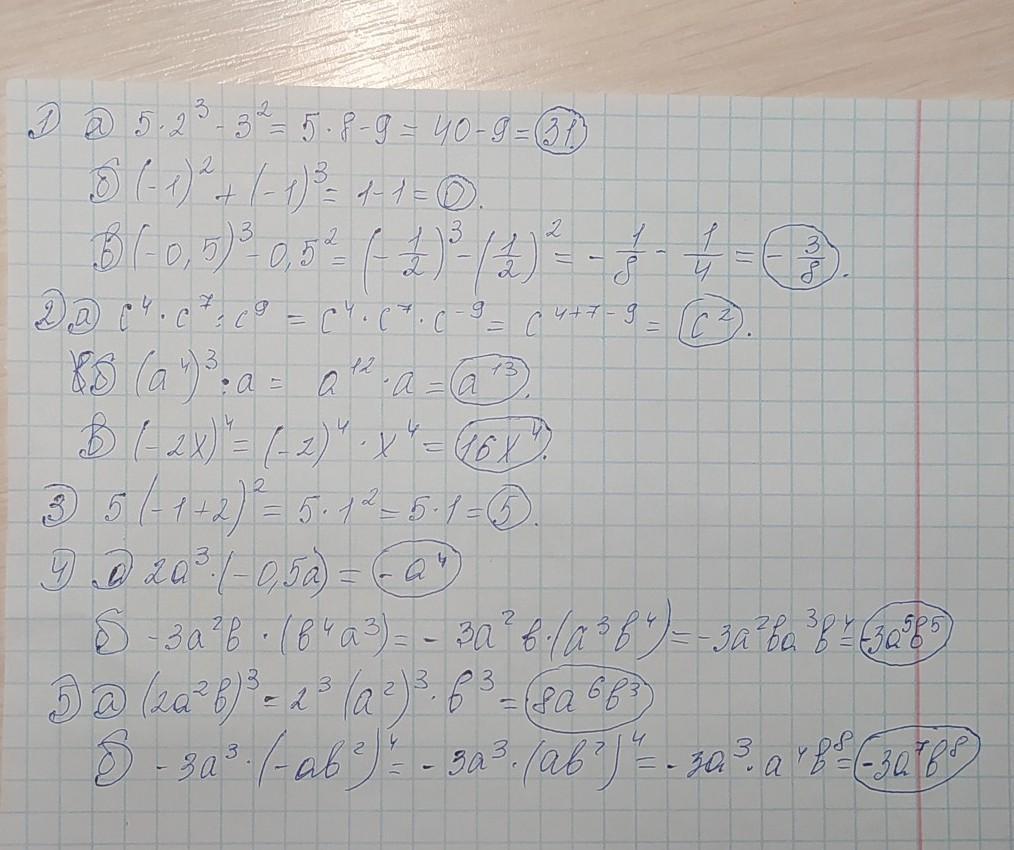 1) а) 5·2³ - 3² = 5·8-9 = 40-9 = 31.
б) (-1)² + (-1)³ = 1-1 = 0.
в) (-0,5)³ - 0,5² = (-1/2)³ - (1/2)² = -1/8 - 1/4 = -3/8.
2) а) c⁴·c⁷:c⁹ = c⁴·c⁷·c⁻⁹ = c⁴⁺⁷⁻⁹ = c².
б) (a⁴)³·a = a¹²·a = a¹³.
в) (-2x)⁴ = (-2)⁴·x⁴ = 16x⁴.
3) 5(-1+2)² = 5·1² = 5·1 = 5.
4) а) 2a³·(-0,5a) = -a⁴
б) -3a²b·(b⁴a³) = -3a²b·(a³b⁴) = -3a²ba³b⁴ = -3a⁵b⁵
5) а) (2a²b)³ = 2³(a²)³·b³ = 8a⁶b³
б) -3a³·(-ab²)⁴ = -3a³·(ab²)⁴ = -3a³·a⁴b⁸ = -3a⁷b⁸